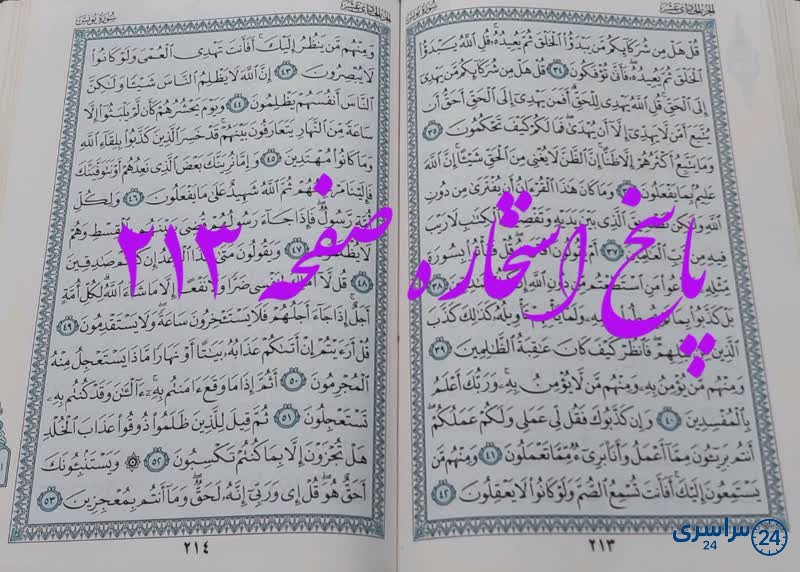 الجزء الحادي عشر
سورة يونس
قُلْ هَلْ مِن شُرَكَائِكُم مَّن يَبْدَؤُا الْخَلْقَ ثُمَّ يُعِيدُهُ قُلِ اللَّهُ يَبْدَؤُا
الْخَلْقَ ثُمَّ يُعِيدُهُ فَأَنَّى تُؤْفَكُونَ ٣٤ قُلْ هَلْ مِن شُرَكَائِكُم مَّن يَهْدِي
إِلَى الْحَقِّ قُلِ اللَّهُ يَهْدِي لِلْحَقِّ أَفَمَن يَهْدِي إِلَى الْحَقِّ أَحَقُّ أَن
يُتَّبَعَ أَمَّن لَّا يَهِدِّي إِلَّا أَن يُهْدَى فَمَا لَكُمْ كَيْفَ تَحْكُمُونَ ٣٥
وَمَا يَتَّبِعُ أَكْثَرُهُمْ إِلَّا ظَنًّا إِنَّ الظَّنَّ لَا يُغْنِي مِنَ الْحَقِّ شَيْئًا إِنَّ اللَّهَ
عَلِيمٌ بِمَا يَفْعَلُونَ وَمَا كَانَ هَذَا الْقُرْءَانُ أَن يُفْتَرَى مِن دُونِ
اللَّهِ وَلَكِن تَصْدِيقَ الَّذِي بَيْنَ يَدَيْهِ وَتَفْصِيلَ الْكِتَابِ لَا رَيْبَ
فِيهِ مِن رَّبِّ الْعَالَمِينَ ٣٧ أَمْ يَقُولُونَ قُلْ فَأْتُوا بِسُورَةٍ
مِّثْلِهِ وَادْعُوا مَنِ اسْتَطَعْتُم مِّن دُونِ اللَّهِ إِن كُنتُمْ صَادِقِينَ ٣٨
بَلْ كَذَّبُوا بِمَا لَمْ يُحِيطُوا بِعِلْمِهِ وَلَمَّا يَأْتِهِمْ تَأْوِيلُهُ كَذَلِكَ كَذَّبَ
الَّذِينَ مِن قَبْلِهِمْ فَانظُرْ كَيْفَ كَانَ عَاقِبَةُ الظَّالِمِينَ ٣٩
وَمِنْهُم مَّن يُؤْمِنُ بِهِ وَمِنْهُم مَّن لَّا يُؤْمِنُ بِهِ وَرَبُّكَ أَعْلَمُ
بِالْمُفْسِدِينَ ٤٠ وَإِن كَذَّبُوكَ فَقُل لِّي عَمَلِي وَلَكُمْ عَمَلُكُمْ
أَنتُم بَرِيئُونَ مِمَّا أَعْمَلُ وَأَنَا بَرِيءٌ مِّمَّا تَعْمَلُونَ ٤١ وَمِنْهُم مَّن
يَسْتَمِعُونَ إِلَيْكَ أَفَأَنتَ تُسْمِعُ الصُّمَّ وَلَوْ كَانُوا لَا يَعْقِلُونَ ٤٢
٢١٣
الجزء الحادي عشر
سورة يونس
وَمِنْهُم مَّن يَنظُرُ إِلَيْكَ أَفَأَنتَ تَهْدِي الْعُمْيَ وَلَوْ كَانُوا
لَا يُبْصِرُونَ ٤٣ إِنَّ اللَّهَ لَا يَظْلِمُ النَّاسَ شَيْئًا وَلَكِنَّ
النَّاسَ أَنفُسَهُمْ يَظْلِمُونَ ٤٤ وَيَوْمَ يَحْشُرُهُمْ كَأَن لَّمْ يَلْبَثُوا إِلَّا
سَاعَةً مِّنَ النَّهَارِ يَتَعَارَفُونَ بَيْنَهُمْ قَدْ خَسِرَ الَّذِينَ كَذَّبُوا بِلِقَاءِ اللَّهِ
وَمَا كَانُوا مُهْتَدِينَ ٤٥ وَإِمَّا نُرِيَنَّكَ بَعْضَ الَّذِي نَعِدُهُمْ أَوْ نَتَوَفَّيَنَّكَ
فَإِلَيْنَا مَرْجِعُهُمْ ثُمَّ اللَّهُ شَهِيدٌ عَلَى مَا يَفْعَلُونَ ٤٦ وَلِكُلِّ
أُمَّةٍ رَّسُولٌ فَإِذَا جَاءَ رَسُولُهُمْ قُضِيَ بَيْنَهُم بِالْقِسْطِ وَهُمْ
لَا يُظْلَمُونَ ٤٧ وَيَقُولُونَ مَتَى هَذَا الْوَعْدُ إِن كُنتُمْ صَادِقِينَ
٤٨ قُل لَّا أَمْلِكُ لِنَفْسِي ضَرًّا وَلَا نَفْعًا إِلَّا مَا شَاءَ اللَّهُ لِكُلِّ أُمَّةٍ
أَجَلٌ إِذَا جَاءَ أَجَلُهُمْ فَلَا يَسْتَأْخِرُونَ سَاعَةً وَلَا يَسْتَقْدِمُونَ ٤٩
قُلْ أَرَءَيْتُمْ إِنْ أَتَاكُمْ عَذَابُهُ بَيَاتًا أَوْ نَهَارًا مَّاذَا يَسْتَعْجِلُ مِنْهُ
الْمُجْرِمُونَ ٥٠ أَثُمَّ إِذَا مَا وَقَعَ ءَامَنتُم بِهِ ءَالْـَٰنَ وَقَدْ كُنتُم بِهِ
تَسْتَعْجِلُونَ ٥١ ثُمَّ قِيلَ لِلَّذِينَ ظَلَمُوا ذُوقُوا عَذَابَ الْخُلْدِ
هَلْ تُجْزَوْنَ إِلَّا بِمَا كُنتُمْ تَكْسِبُونَ ٥٢ ۞ وَيَسْتَنبِئُونَكَ
أَحَقٌّ هُوَ قُلْ إِي وَرَبِّي إِنَّهُ لَحَقٌّ وَمَا أَنتُم بِمُعْجِزِينَ ٥٣
٢١٤
پاسخ استخاره صفحه ۲۱۳
سراسری
24
24